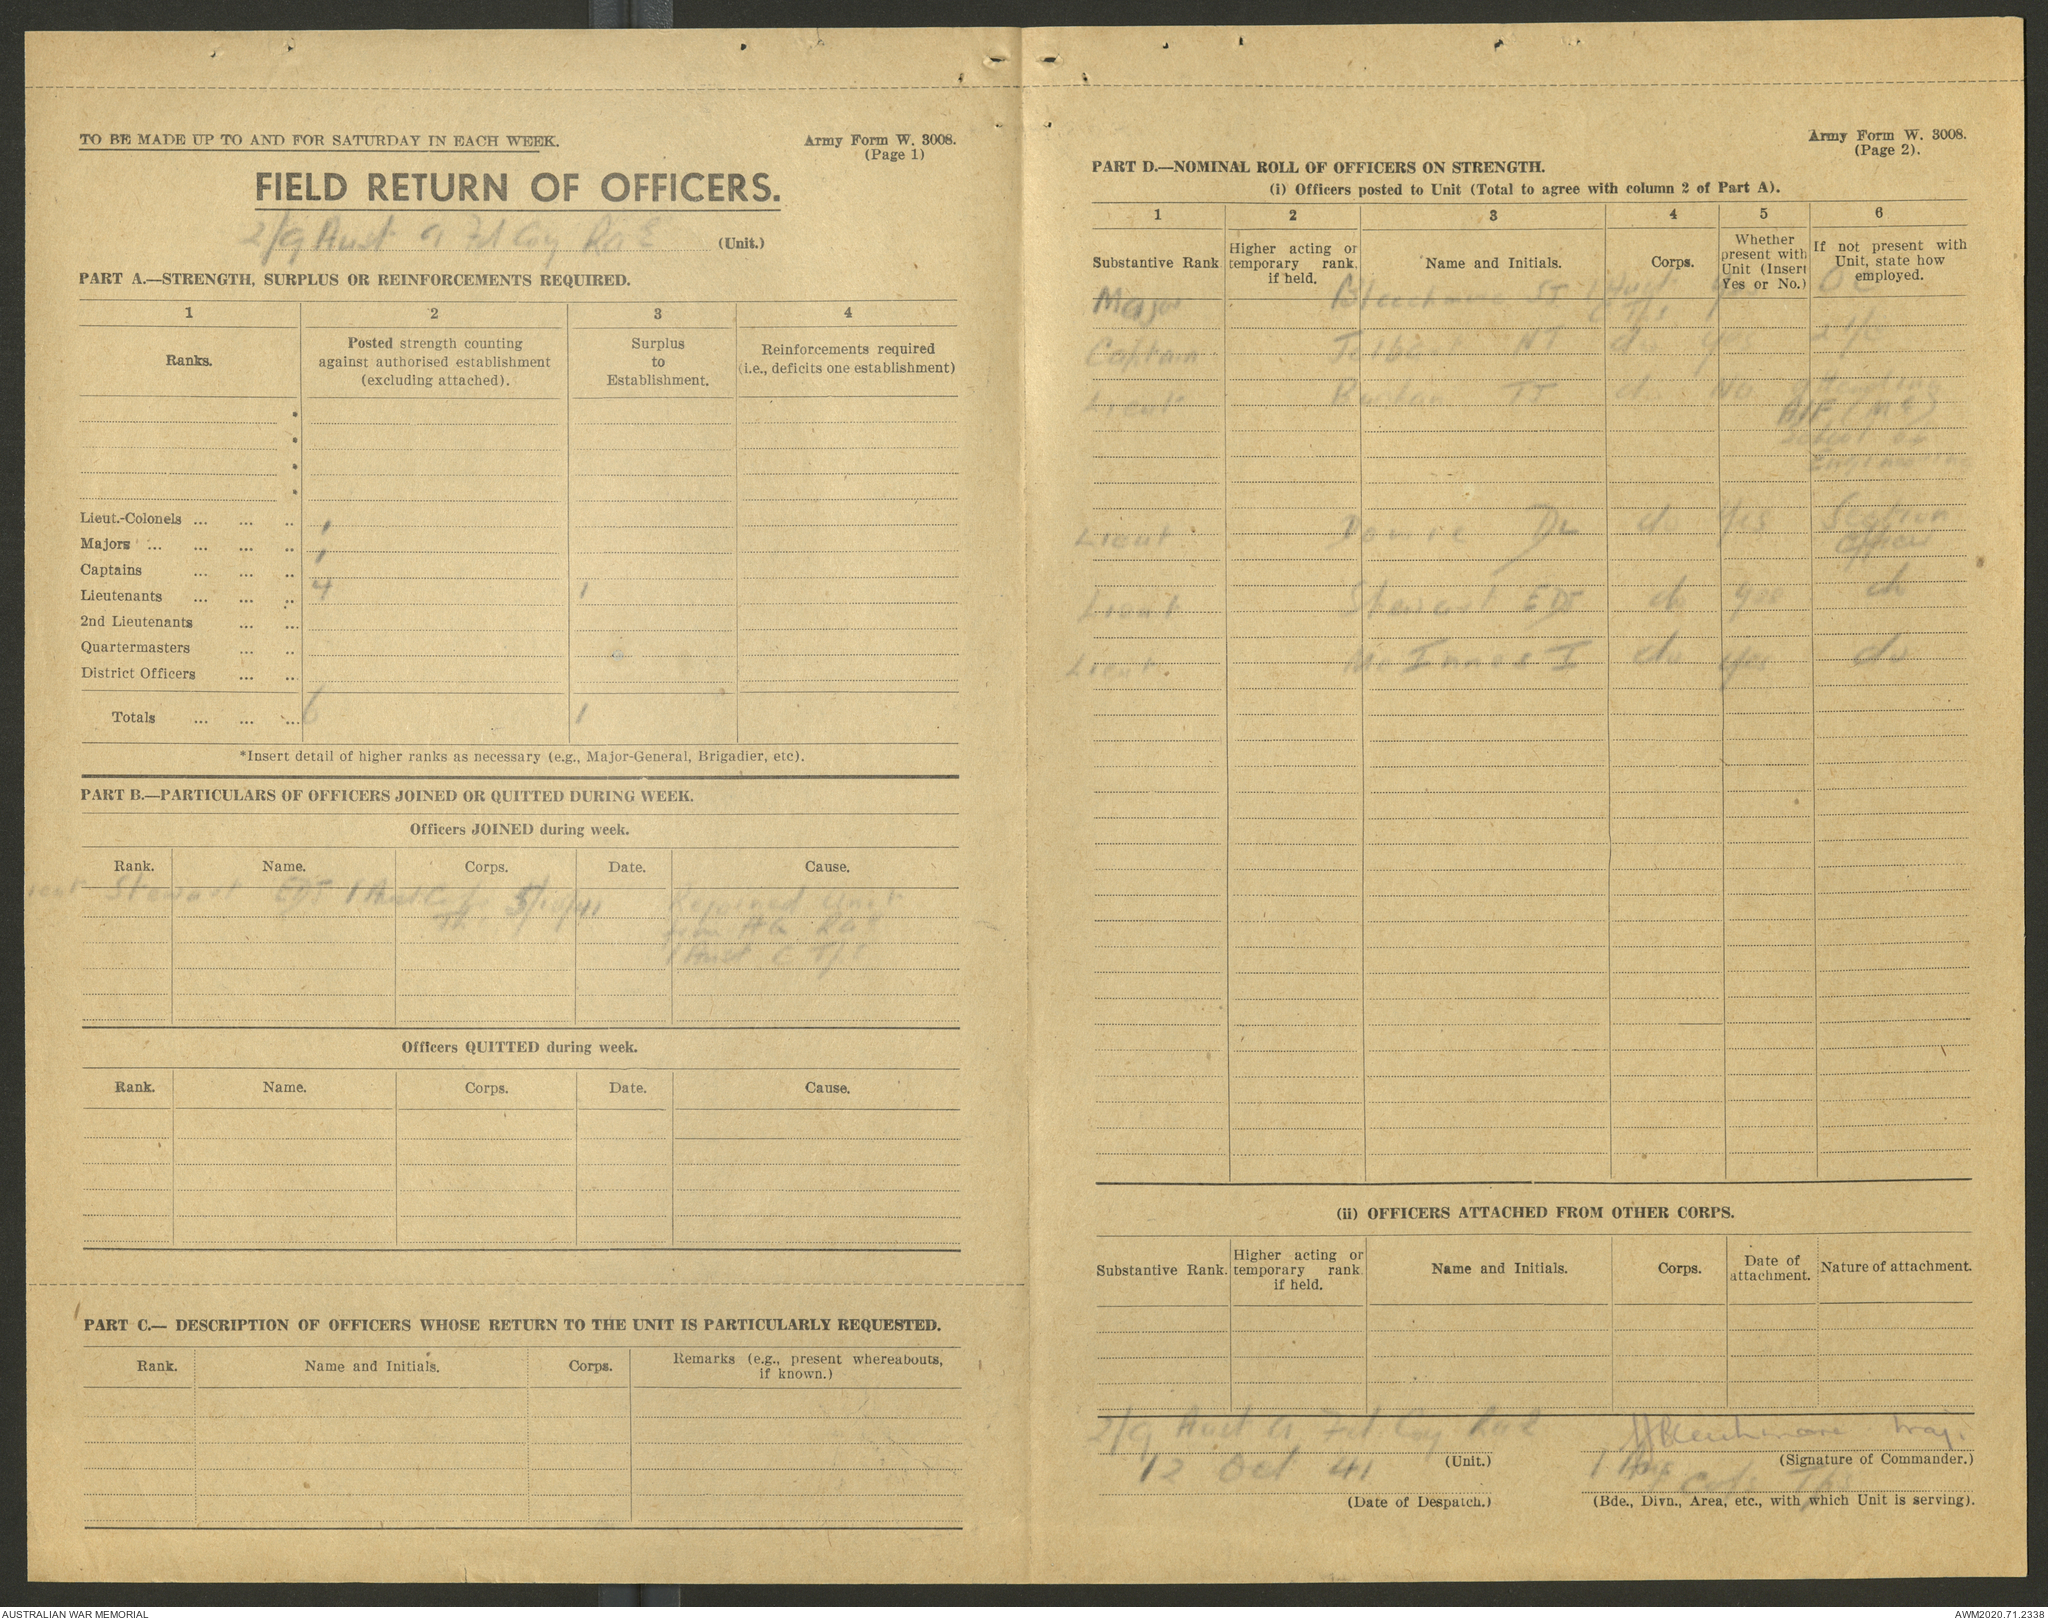 TO BE MADE UP TO AND FOR SATURDAY IN EACH WEEK.
Army Form W. 3008.
(Page 1)
FIELD RETURN OF OFFICERS.
2/9 Aust a Fd Coy RaE (Unit.)
PART A.—STRENGTH, SURPLUS OR REINFORCEMENTS REQUIRED.
1 2 3 4
Ranks.
Posted strength counting against authorised establishment (excluding attached).
Surplus to Establishment.
Reinforcements required (i.e., deficits one establishment)
*
*
*
*
Lieut.-Colonels ... ... ..
Majors ... ... ... .. 1
Captains ... ... .. 1
Lieutenants ... ... .. 4 1
2nd Lieutenants ... ...
Quartermasters ... ..
District Officers ... ...
Totals ... ... ... 6 1
*Insert detail of higher ranks as necessary (e.g., Major-General, Brigadier, etc).
PART B.—PARTICULARS OF OFFICERS JOINED OR QUITTED DURING WEEK.
Officers JOINED during week.
Rank. Name. Corps. Date. Cause.
Lieut Stewart EDJ 1 Aust Corps 5/10/41 Rejoined Unit
from HQ RaE
1 Aust C T/s
Officers QUITTED during week.
Rank. Name. Corps. Date. Cause.
PART C.— DESCRIPTION OF OFFICERS WHOSE RETURN TO THE UNIT IS PARTICULARLY REQUESTED.
Rank. Name and Initials. Corps. Remarks (e.g., present whereabouts, if known.)
Army Form W. 3008.
(Page 2).
PART D.—NOMINAL ROLL OF OFFICERS ON STRENGTH.
(i) Officers posted to Unit (Total to agree with column 2 of Part A).
1 2 3 4 5 6
Substantive Rank.
Higher acting or temporary rank. if held.
Name and Initials.
Corps.
Whether present with Unit (Insert Yes or No.)
If not present with Unit, state how employed.
Major Bleechmore 1 Aust C T/s Yes OC
Captain NT do Yes 2 i/c
Lieut do No Attending
AIF (ME)
School of
Engineering
Lieut Dowie DL do Yes Section
Officer
Lieut Stewart EDJ do Yes do
Lieut McInnes I do Yes do
(ii) OFFICERS ATTACHED FROM OTHER CORPS.
Substantive Rank.
Higher acting or temporary rank. if held.
Name and Initials.
Corps.
Date of attachment.
Nature of attachment.
2/9 Aust a Fd Coy RaE
(Unit.)
Bleechmore Maj.
(Signature of Commander.)
12 Oct 41
(Date of Despatch.)
1 Aus Corps Tps
(Bde., Divn., Area, etc., with which Unit is serving).
AUSTRALIAN WAR MEMORIAL
AWM2020.71.2338